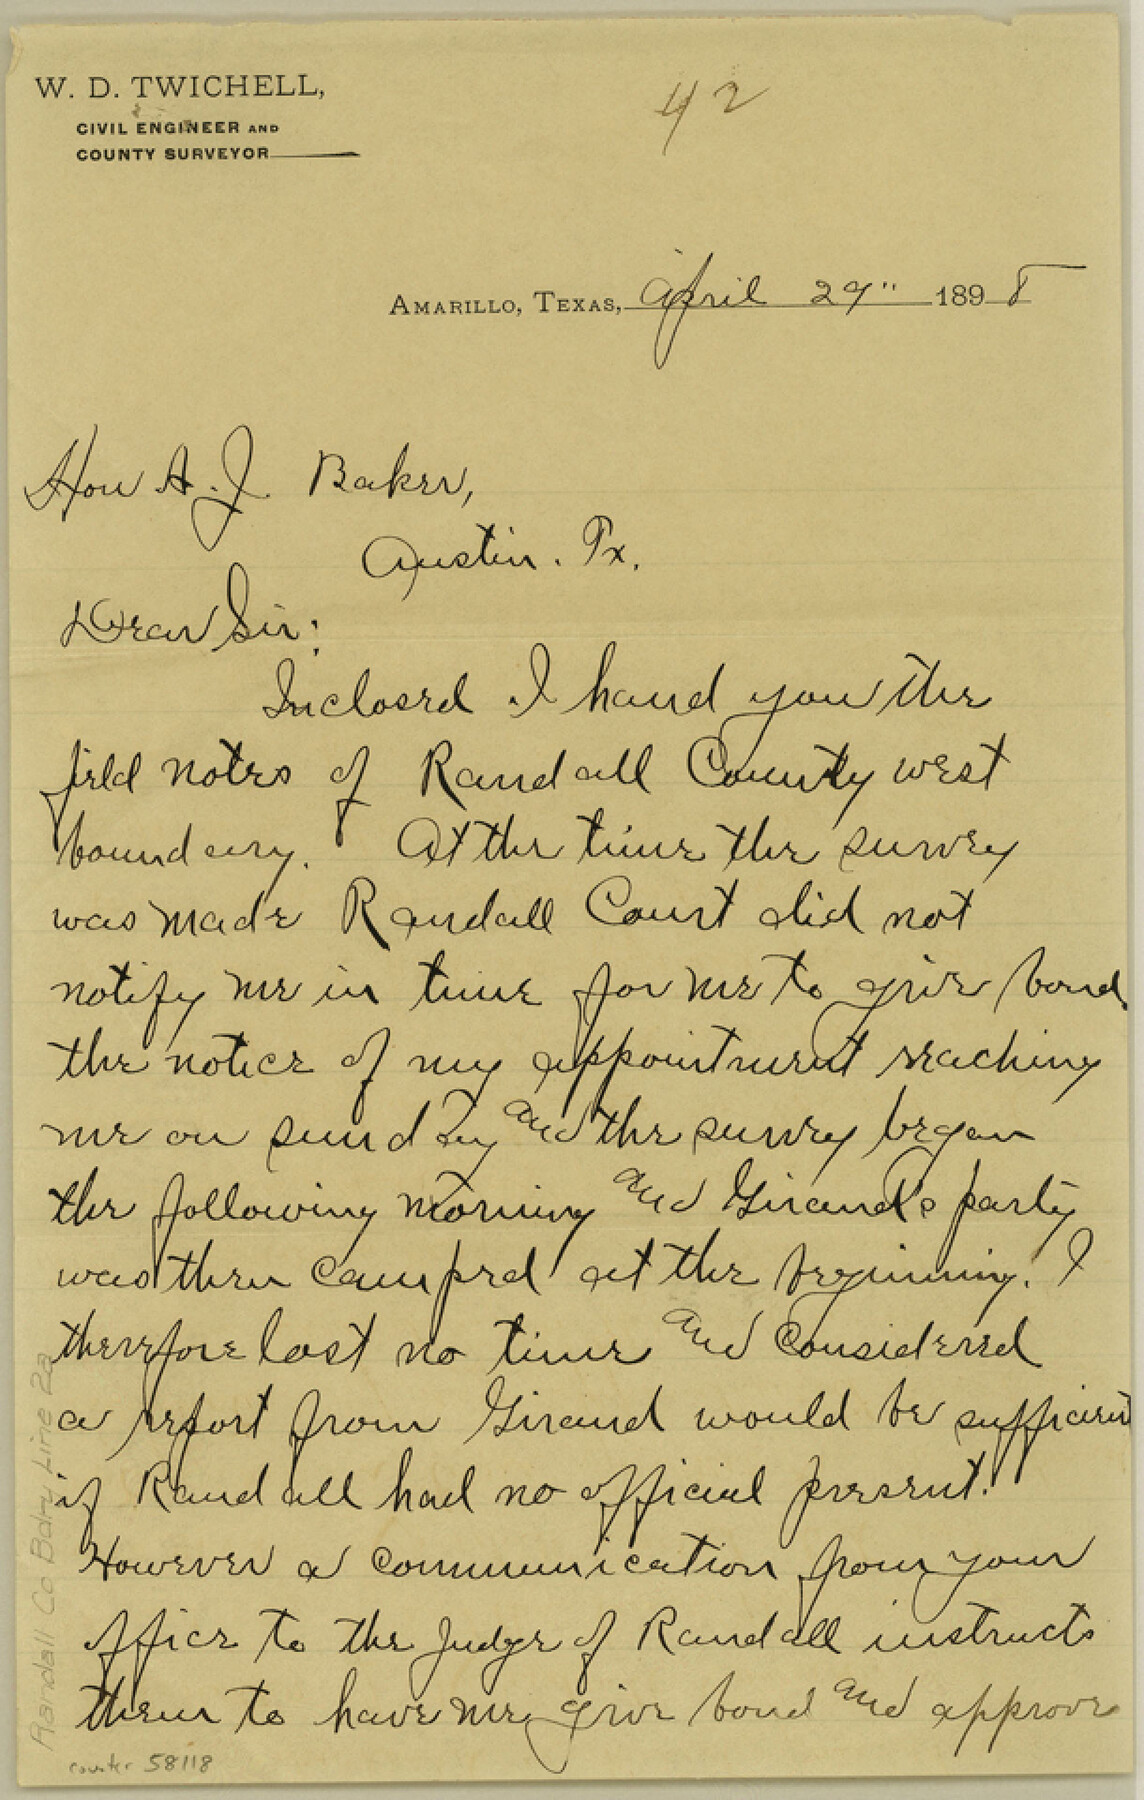 W. D. TWICHELL,
CIVIL ENGINEER AND
COUNTY SURVEYOR
42
AMARILLO, TEXAS, April 29" 1898
Hon A. J. Baker,
Austin. Tx.
Dear Sir:
Inclosed I hand you the
field notes of Randall County west
boundary. At the time the survey
was made Randall Court did not
notify me in time for me to give bond
the notice of my appointment reaching
me on sunday and the survey began
the following morning and Giraud's party
was then camped at the beginning. I
therefore lost no time and considered
a report from Giraud would be sufficient
if Randall had no official present.
However a communication from your
office to the Judge of Randall instructs
them to have me give bond and approve
Randall Co Bdry Line 2a
counter 58118